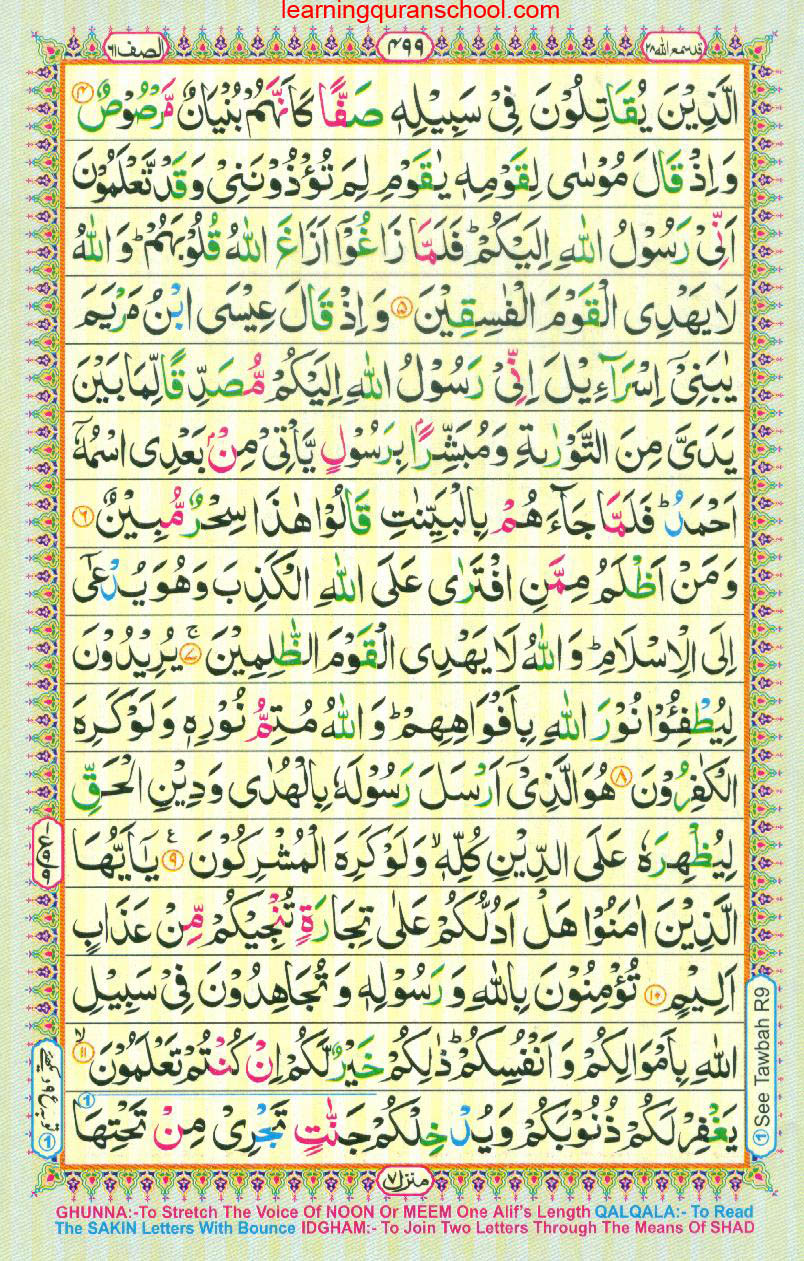 learningquranschool.com
قد سمع الله ٢٨
٤٩٩
الصف ٦١
الَّذِيْنَ يُقَاتِلُوْنَ فِيْ سَبِيْلِهٖ صَفًّا كَاَنَّهُمْ بُنْيَانٌ مَّرْصُوْصٌ ۴
وَ اِذْ قَالَ مُوْسٰى لِقَوْمِهٖ يٰقَوْمِ لِمَ تُؤْذُوْنَنِيْ وَ قَدْ تَّعْلَمُوْنَ
اَنِّيْ رَسُوْلُ اللّٰهِ اِلَيْكُمْ ؕ فَلَمَّا زَاغُوْۤا اَزَاغَ اللّٰهُ قُلُوْبَهُمْ ؕ وَ اللّٰهُ
لَا يَهْدِي الْقَوْمَ الْفٰسِقِيْنَ ۵ وَ اِذْ قَالَ عِيْسَى ابْنُ مَرْيَمَ
يٰبَنِيْۤ اِسْرَآءِيْلَ اِنِّيْ رَسُوْلُ اللّٰهِ اِلَيْكُمْ مُّصَدِّقًا لِّمَا بَيْنَ
يَدَيَّ مِنَ التَّوْرٰىةِ وَ مُبَشِّرًۢا بِرَسُوْلٍ يَّاْتِيْ مِنْۢ بَعْدِي اسْمُهٗۤ
اَحْمَدُ ؕ فَلَمَّا جَآءَهُمْ بِالْبَيِّنٰتِ قَالُوْا هٰذَا سِحْرٌ مُّبِيْنٌ ۶
وَ مَنْ اَظْلَمُ مِمَّنِ افْتَرٰى عَلَى اللّٰهِ الْكَذِبَ وَ هُوَ يُدْعٰۤى
اِلَى الْاِسْلَامِ ؕ وَ اللّٰهُ لَا يَهْدِي الْقَوْمَ الظّٰلِمِيْنَ ۚ ۷ يُرِيْدُوْنَ
لِيُطْفِـُٔوْا نُوْرَ اللّٰهِ بِاَفْوَاهِهِمْ ؕ وَ اللّٰهُ مُتِمُّ نُوْرِهٖ وَ لَوْ كَرِهَ
الْكٰفِرُوْنَ ۸ هُوَ الَّذِيْۤ اَرْسَلَ رَسُوْلَهٗ بِالْهُدٰى وَ دِيْنِ الْحَقِّ
لِيُظْهِرَهٗ عَلَى الدِّيْنِ كُلِّهٖ ۙ وَ لَوْ كَرِهَ الْمُشْرِكُوْنَ ۹ ع يٰۤاَيُّهَا
الَّذِيْنَ اٰمَنُوْا هَلْ اَدُلُّكُمْ عَلٰى تِجَارَةٍ تُنْجِيْكُمْ مِّنْ عَذَابٍ
اَلِيْمٍ ۱۰ تُؤْمِنُوْنَ بِاللّٰهِ وَ رَسُوْلِهٖ وَ تُجَاهِدُوْنَ فِيْ سَبِيْلِ
اللّٰهِ بِاَمْوَالِكُمْ وَ اَنْفُسِكُمْ ؕ ذٰلِكُمْ خَيْرٌ لَّكُمْ اِنْ كُنْتُمْ تَعْلَمُوْنَ ۙ ۱۱
يَغْفِرْ لَكُمْ ذُنُوْبَكُمْ وَ يُدْخِلْكُمْ جَنّٰتٍ تَجْرِيْ مِنْ تَحْتِهَا
1 See Tawbah R9
منزل ۷
GHUNNA:-To Stretch The Voice Of NOON Or MEEM One Alif's Length QALQALA:- To Read
The SAKIN Letters With Bounce IDGHAM:- To Join Two Letters Through The Means Of SHAD